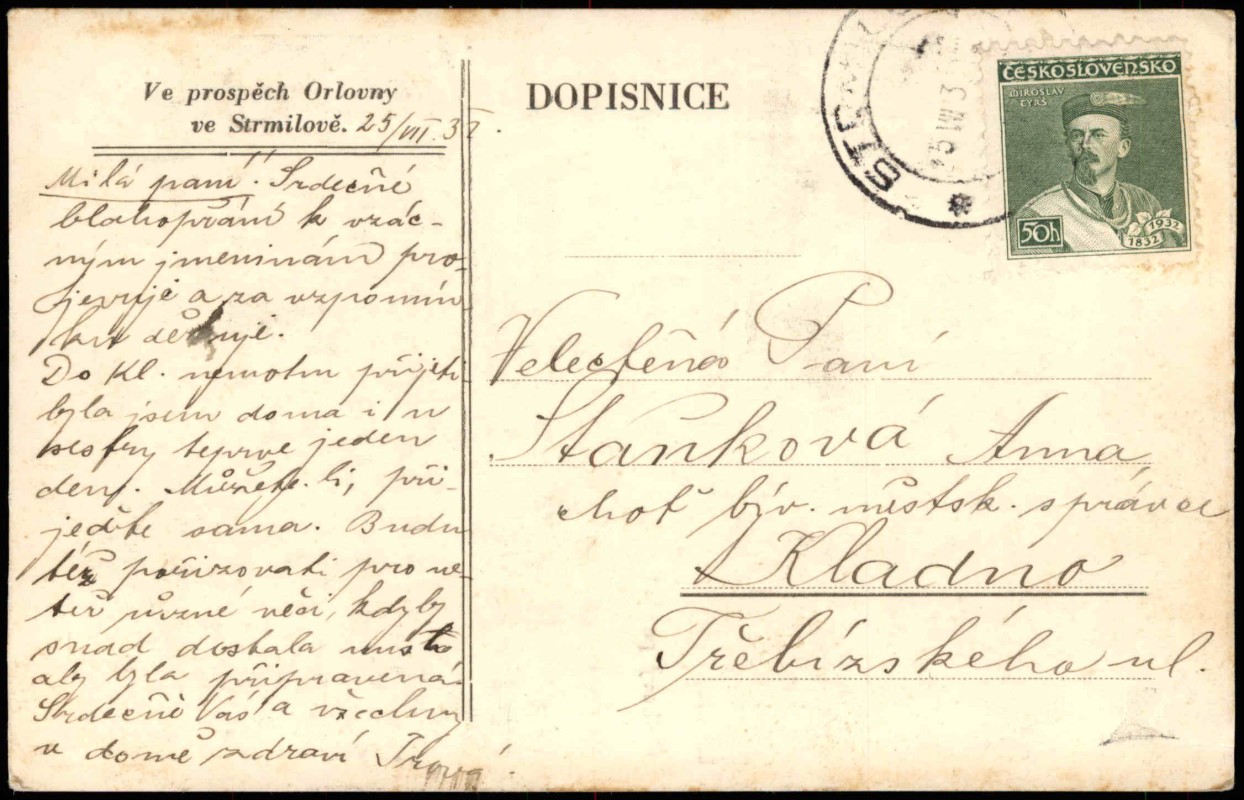 Ve prospěch Orlovny
ve Strmilově. 25/VII. 32.
Milá paní. Srdečné
blahopřání k vzác-
ným jmeninám pro-
jevuje a za vzpomín
ku děkuje.
Do Kl. nemohu přijeti
byla jsem doma i u
sestry teprve jeden
den. Můžete-li, při-
jeďte sama. Budu
též pořizovati pro ne-
teř různé věci, kdyby
snad dostala místo
aby byla připravená.
Srdečně Vás a všechny
u domě zdraví
DOPISNICE
ČESKOSLOVENSKO
MIROSLAV
TYRŠ
50h
1832 1932
Velectěná Paní
Staňková Anna
choť býv. městsk. správce
Kladno
Třebízského ul.